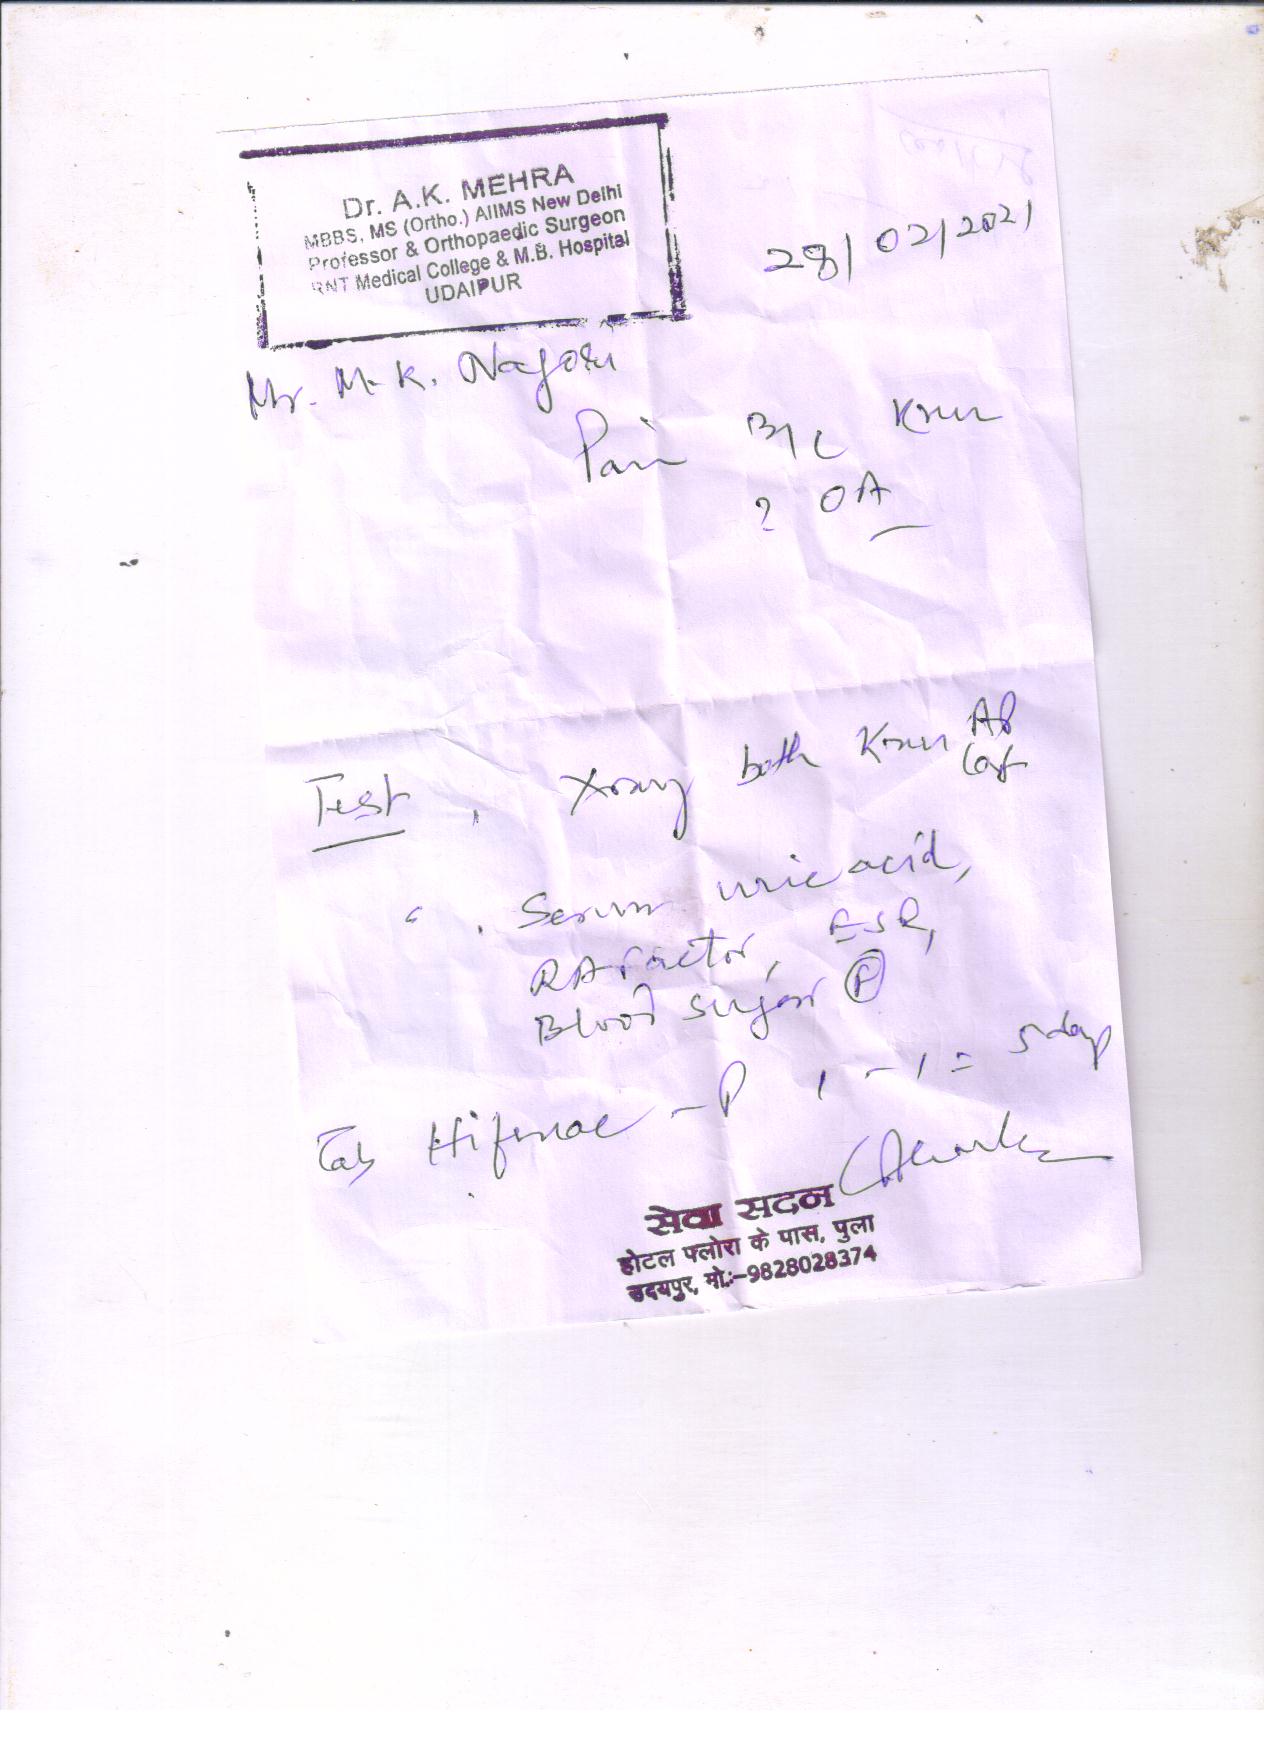 Dr. A.K. MEHRA
MBBS, MS (Ortho.) AIIMS New Delhi
Professor & Orthopaedic Surgeon
RNT Medical College & M.B. Hospital
UDAIPUR
28/02/2021
Mr. M. K. Nagori
Pain B/L Knee
? OA
Test , Xray both Knee AP
Lat
" , Serum uric acid,
RA factor, ESR,
Blood sugar
Tab Hifenac - P 1 - 1 = 5 day
सेवा सदन
होटल फ्लोरा के पास, पुला
उदयपुर, मो.:-9828028374